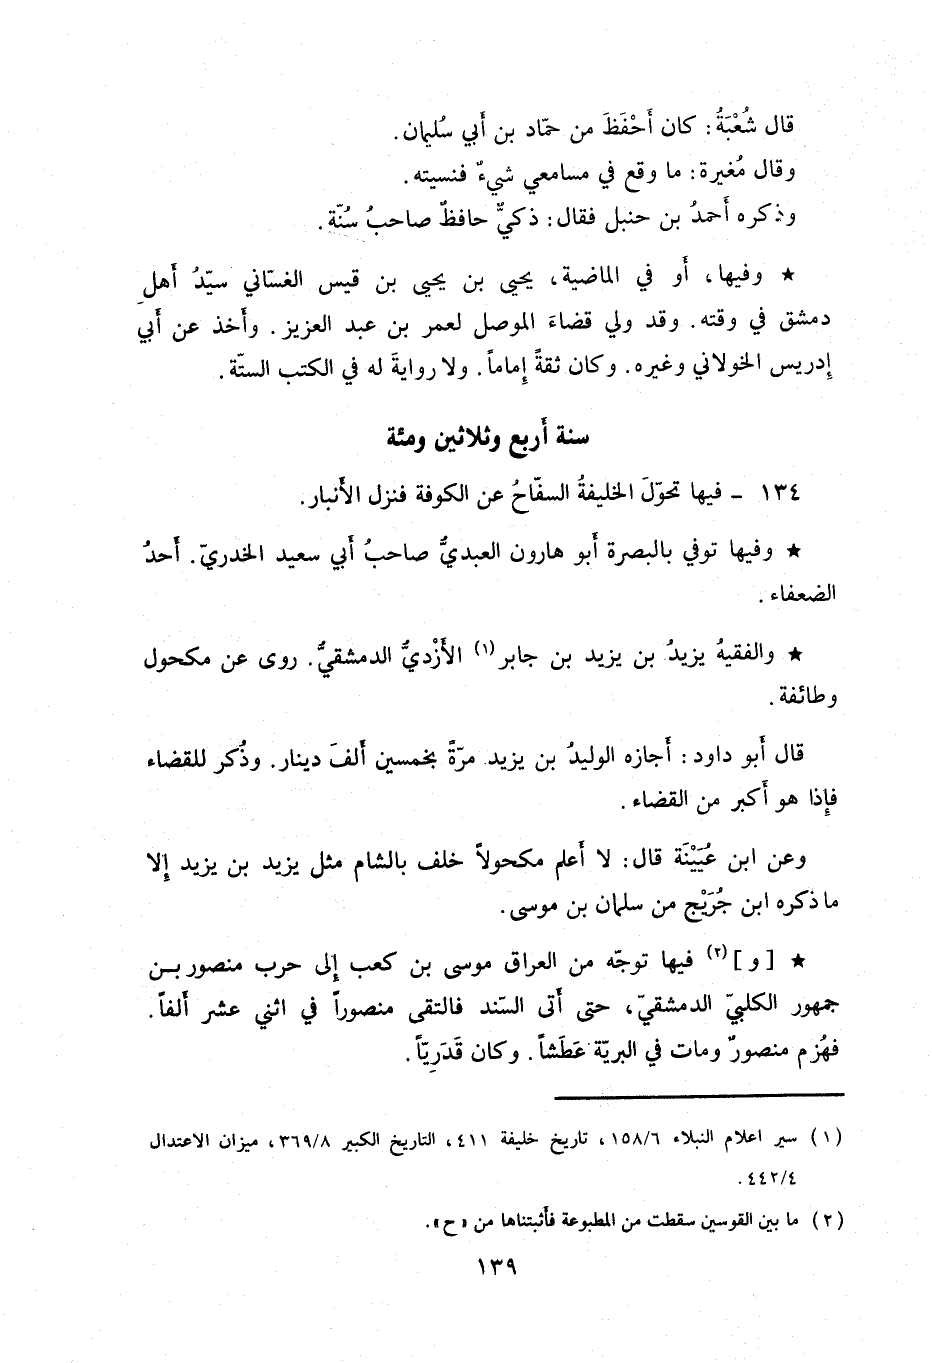 قال شُعْبَةُ : كان أَحْفَظَ من حمّاد بن أَبي سُليمان .
وقال مُغيرة : ما وقع في مسامعي شيءٌ فنسيته .
وذكره أَحمدُ بن حنبل فقال : ذكيٌّ حافظٌ صاحبُ سُنّة .
★ وفيها ، أَو في الماضية ، يحيى بن يحيى بن قيس الغسّاني سيّدُ أَهلِ
دمشق في وقته . وقد ولي قضاءَ الموصل لعمر بن عبد العزيز . وأَخذ عن أَبي
إدريس الخولاني وغيره . وكان ثقةً إماماً . ولا روايةَ له في الكتب الستّة .
سنة أَربع وثلاثين ومئة
١٣٤ - فيها تحوّلَ الخليفةُ السفّاحُ عن الكوفة فنزل الأَنبار .
★ وفيها توفي بالبصرة أَبو هارون العبديُّ صاحبُ أَبي سعيد الخدريّ . أَحدُ
الضعفاء .
★ والفقيهُ يزيدُ بن يزيد بن جابر (١) الأَزْديُّ الدمشقيُّ . روى عن مكحول
وطائفة .
قال أَبو داود : أَجازه الوليدُ بن يزيد مرّةً بخمسين أَلفَ دينار . وذُكر للقضاء
فإذا هو أَكبر من القضاء .
وعن ابن عُيَيْنَة قال : لا أَعلم مكحولاً خلف بالشام مثل يزيد بن يزيد إلا
ما ذكره ابن جُرَيْج من سلمان بن موسى .
★ [ و ] (٢) فيها توجّه من العراق موسى بن كعب إلى حرب منصور بن
جمهور الكلبيّ الدمشقيّ ، حتى أَتى السّند فالتقى منصوراً في اثني عشر أَلفاً .
فهُزم منصورٌ ومات في البريّة عَطَشاً . وكان قَدَرِيّاً .
(١) سير اعلام النبلاء ١٥٨/٦ ، تاريخ خليفة ٤١١ ، التاريخ الكبير ٣٦٩/٨ ، ميزان الاعتدال
٤٤٢/٤ .
(٢) ما بين القوسين سقطت من المطبوعة فأثبتناها من «ح» .
١٣٩